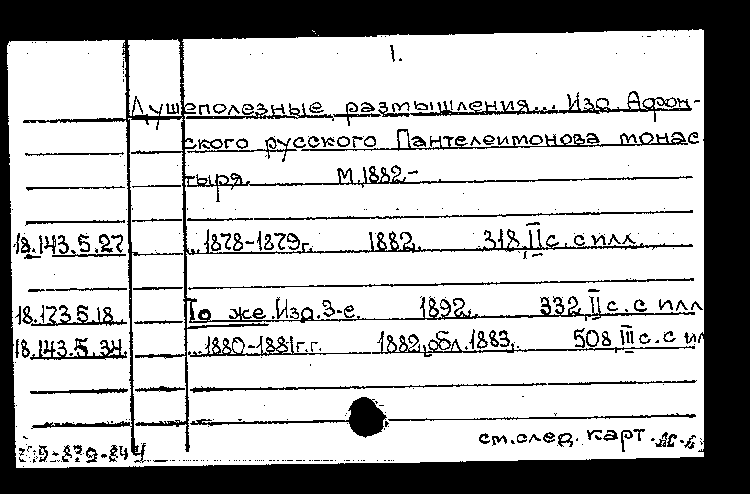 1.
Душеполезные размышления... Изд. Афон-
ского русского Пантелеимонова монас
тыря. М., 1882.-
18.143.5.27 ...1878-1879г. 1882. 318, II с. с илл.
18.173.5.18. То же. Изд. 3-е. 1892. 332, II с. с илл
18.143.5.34. ...1880-1881г.г. 1882, обл. 1883. 508, III с. с ил
см. след. карт.